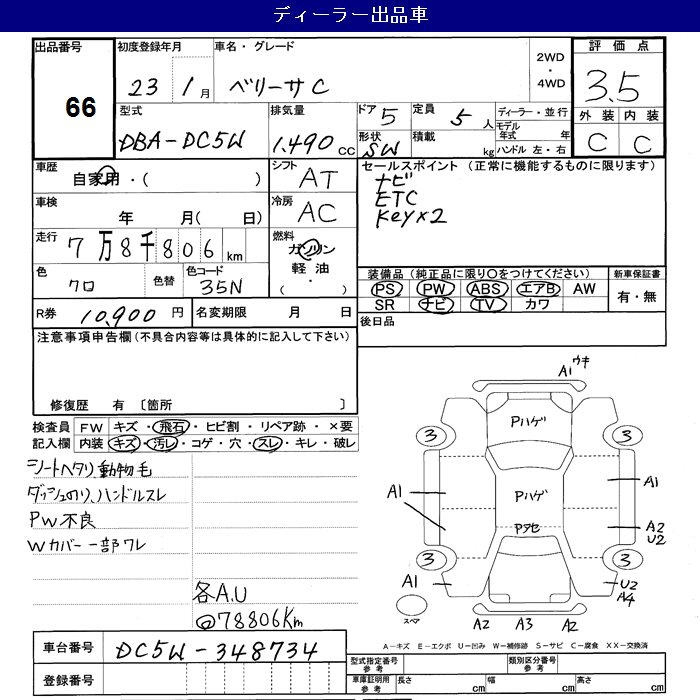 ディーラー出品車
出品番号 初度登録年月 車名・グレード
66 23 1月 ベリーサ C 2WD・4WD
評価点 3.5
外装 内装
C C
型式 排気量 ドア 5 定員 5人 ディーラー・並行
DBA-DC5W 1.490cc 形状 SW 積載 kg モデル年式 年
ハンドル 左・右
車歴 自家用・( ) シフト AT
車検 年 月( 日) 冷房 AC
走行 7万8千806km 燃料 ガソリン
軽油
・
( )
色 クロ 色替 色コード 35N
R券 10,900円 名変期限 月 日
セールスポイント (正常に機能するものに限ります)
ナビ
ETC
Key×2
装備品(純正品に限り○をつけてください) 新車保証書
PS PW ABS エアB AW 有・無
SR ナビ TV カワ
後日品
注意事項申告欄(不具合内容等は具体的に記入して下さい)
修復歴 有 〔箇所 〕
検査員 FW キズ・飛石・ヒビ割・リペア跡・×要
記入欄 内装 キズ・汚レ・コゲ・穴・スレ・キレ・破レ
シートヘタリ、動物毛
ダッシュのり、ハンドルスレ
PW不良
Wカバー一部ワレ
各A.U
@78806Km
A1 ウキ
Pハゲ
3 3
A1 Pハゲ A1
Pアセ A2
U2
3 3
A1 U2
A4
スペア
A2 A3 A2
A-キズ E-エクボ U-凹み W-補修跡 S-サビ C-腐食 XX-交換済
車台番号 DC5W-348734
登録番号
型式指定番号 参考 類別区分番号 参考
車庫証明用 参考 長さ cm 幅 cm 高さ cm